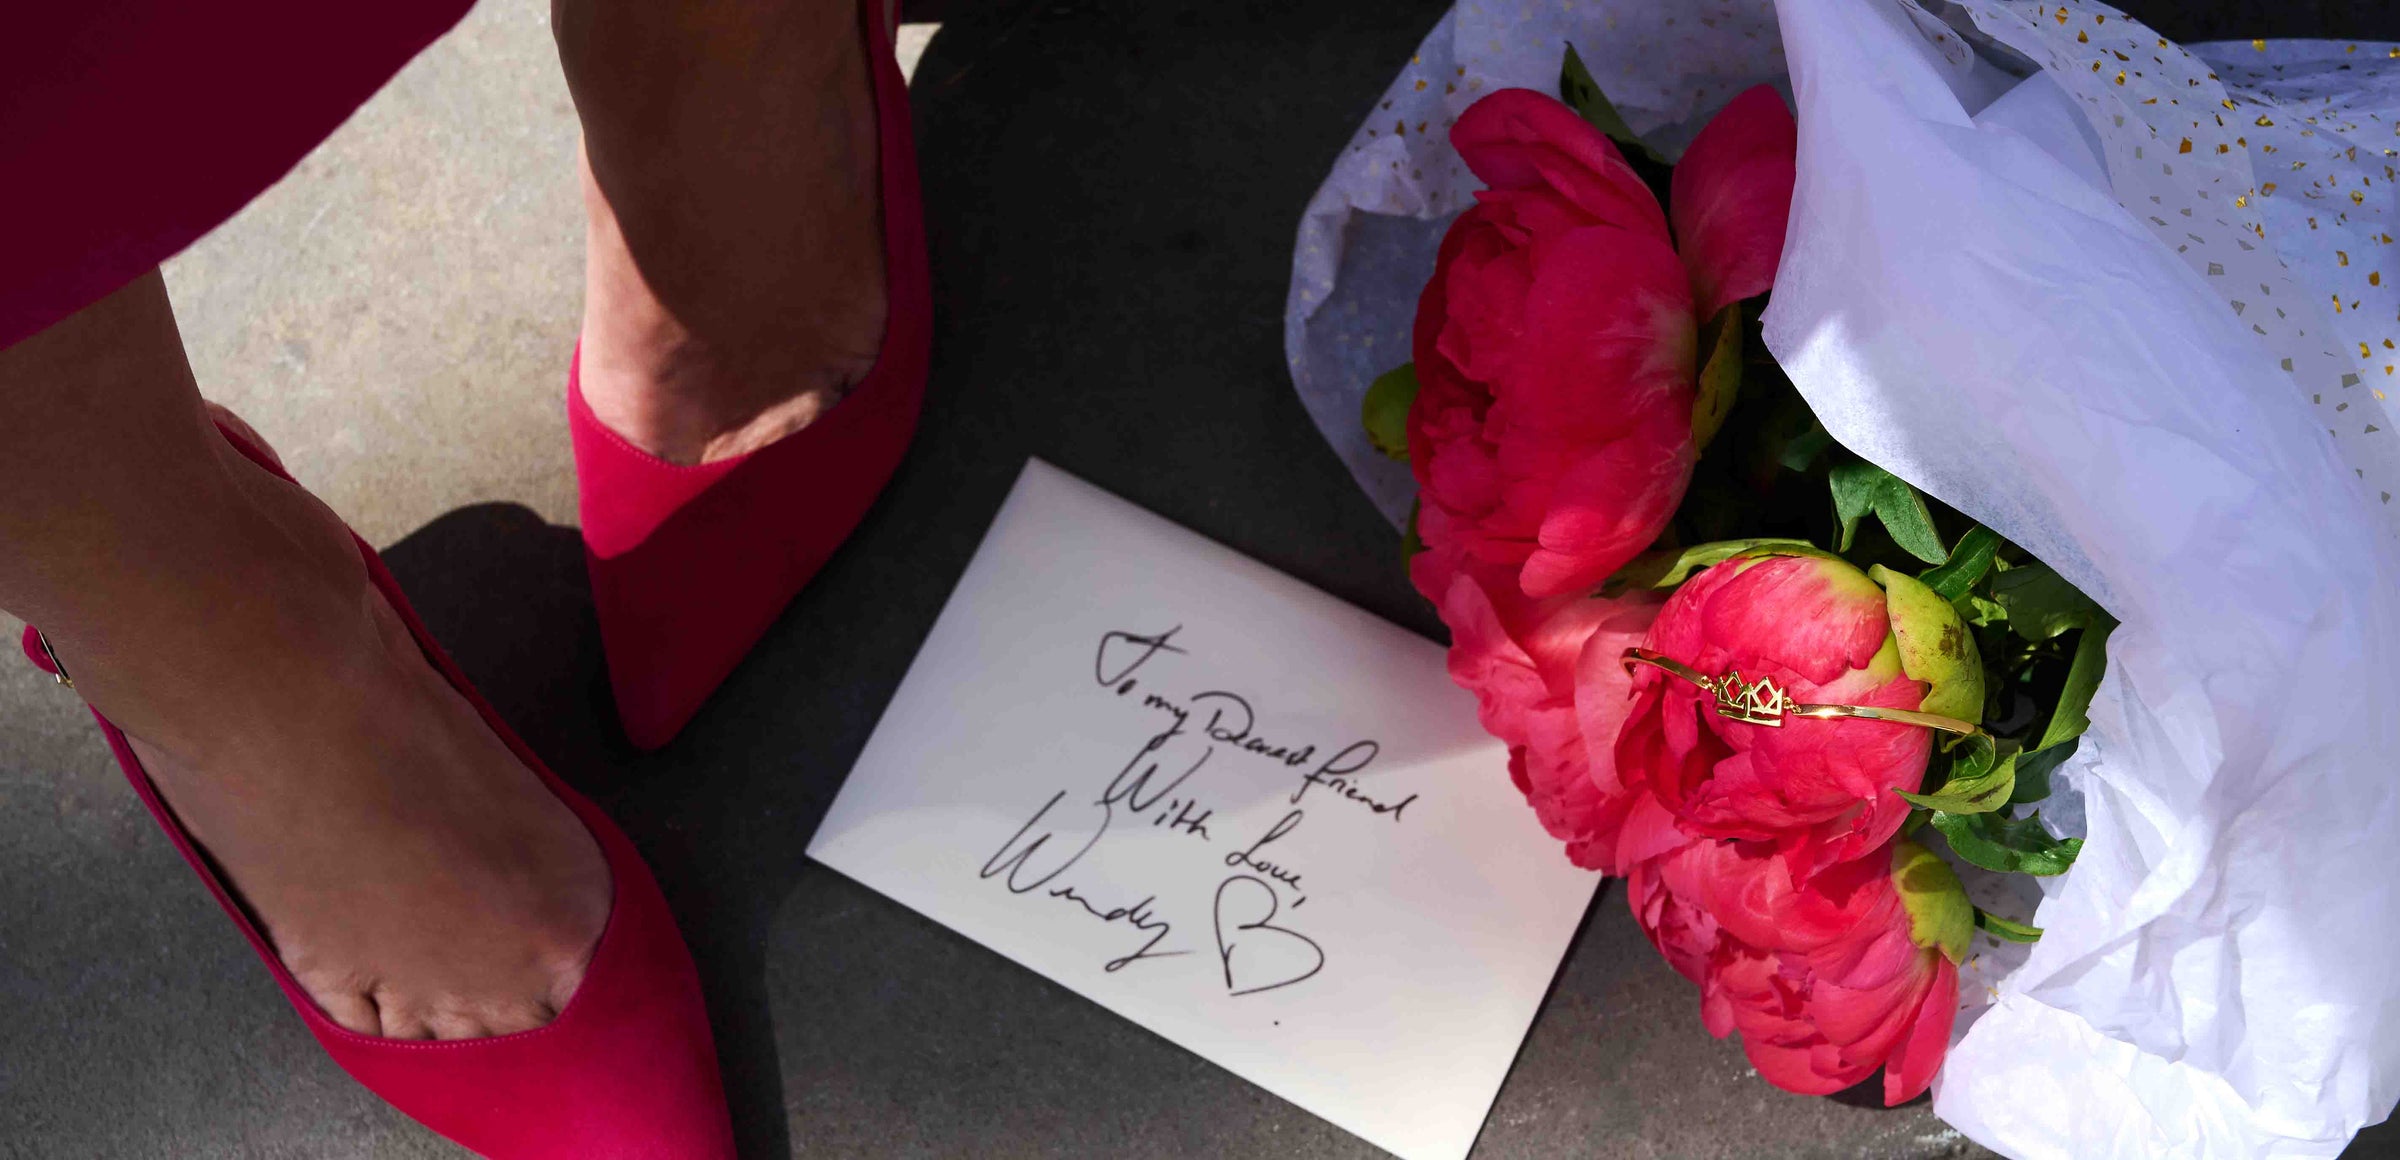 To my Dearest friend
With Love,
Wendy